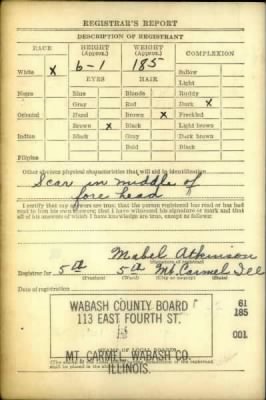 REGISTRAR'S REPORT
DESCRIPTION OF REGISTRANT
RACE HEIGHT (Approx.) WEIGHT (Approx.) COMPLEXION
White X 6-1 185 Sallow
EYES HAIR Light
Negro Blue Blonde Ruddy
Gray Red Dark X
Oriental Hazel Brown X Freckled
Brown X Black Light brown
Indian Black Gray Dark brown
Bald Black
Filipino
Other obvious physical characteristics that will aid in identification
Scar in middle of
fore head
I certify that my answers are true; that the person registered has read or has had
read to him his own answers; that I have witnessed his signature or mark and that
all of his answers of which I have knowledge are true, except as follows:
Mabel Atkinson
Registrar for 5th 5th Mt. Carmel Ill
(Precinct) (Ward) (City or county) (State)
Date of registration
WABASH COUNTY BOARD 1
113 EAST FOURTH ST.
MT. CARMEL, WABASH CO.
ILLINOIS.
61
185
001
(STAMP OF LOCAL BOARD)
shall be placed in the above space.)